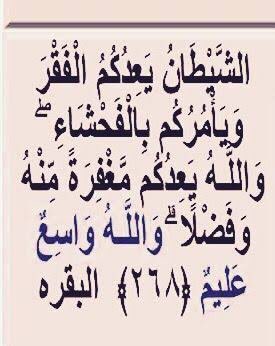 الشَّيْطَانُ يَعِدُكُمُ الْفَقْرَ
وَيَأْمُرُكُم بِالْفَحْشَاءِ ۖ
وَاللَّهُ يَعِدُكُم مَّغْفِرَةً مِّنْهُ
وَفَضْلًا ۗ وَاللَّهُ وَاسِعٌ
عَلِيمٌ ﴿٢٦٨﴾ البقره